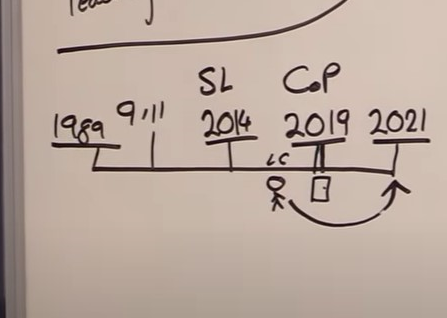 SL CoP
1989 9/11 2014 2019 2021
LC